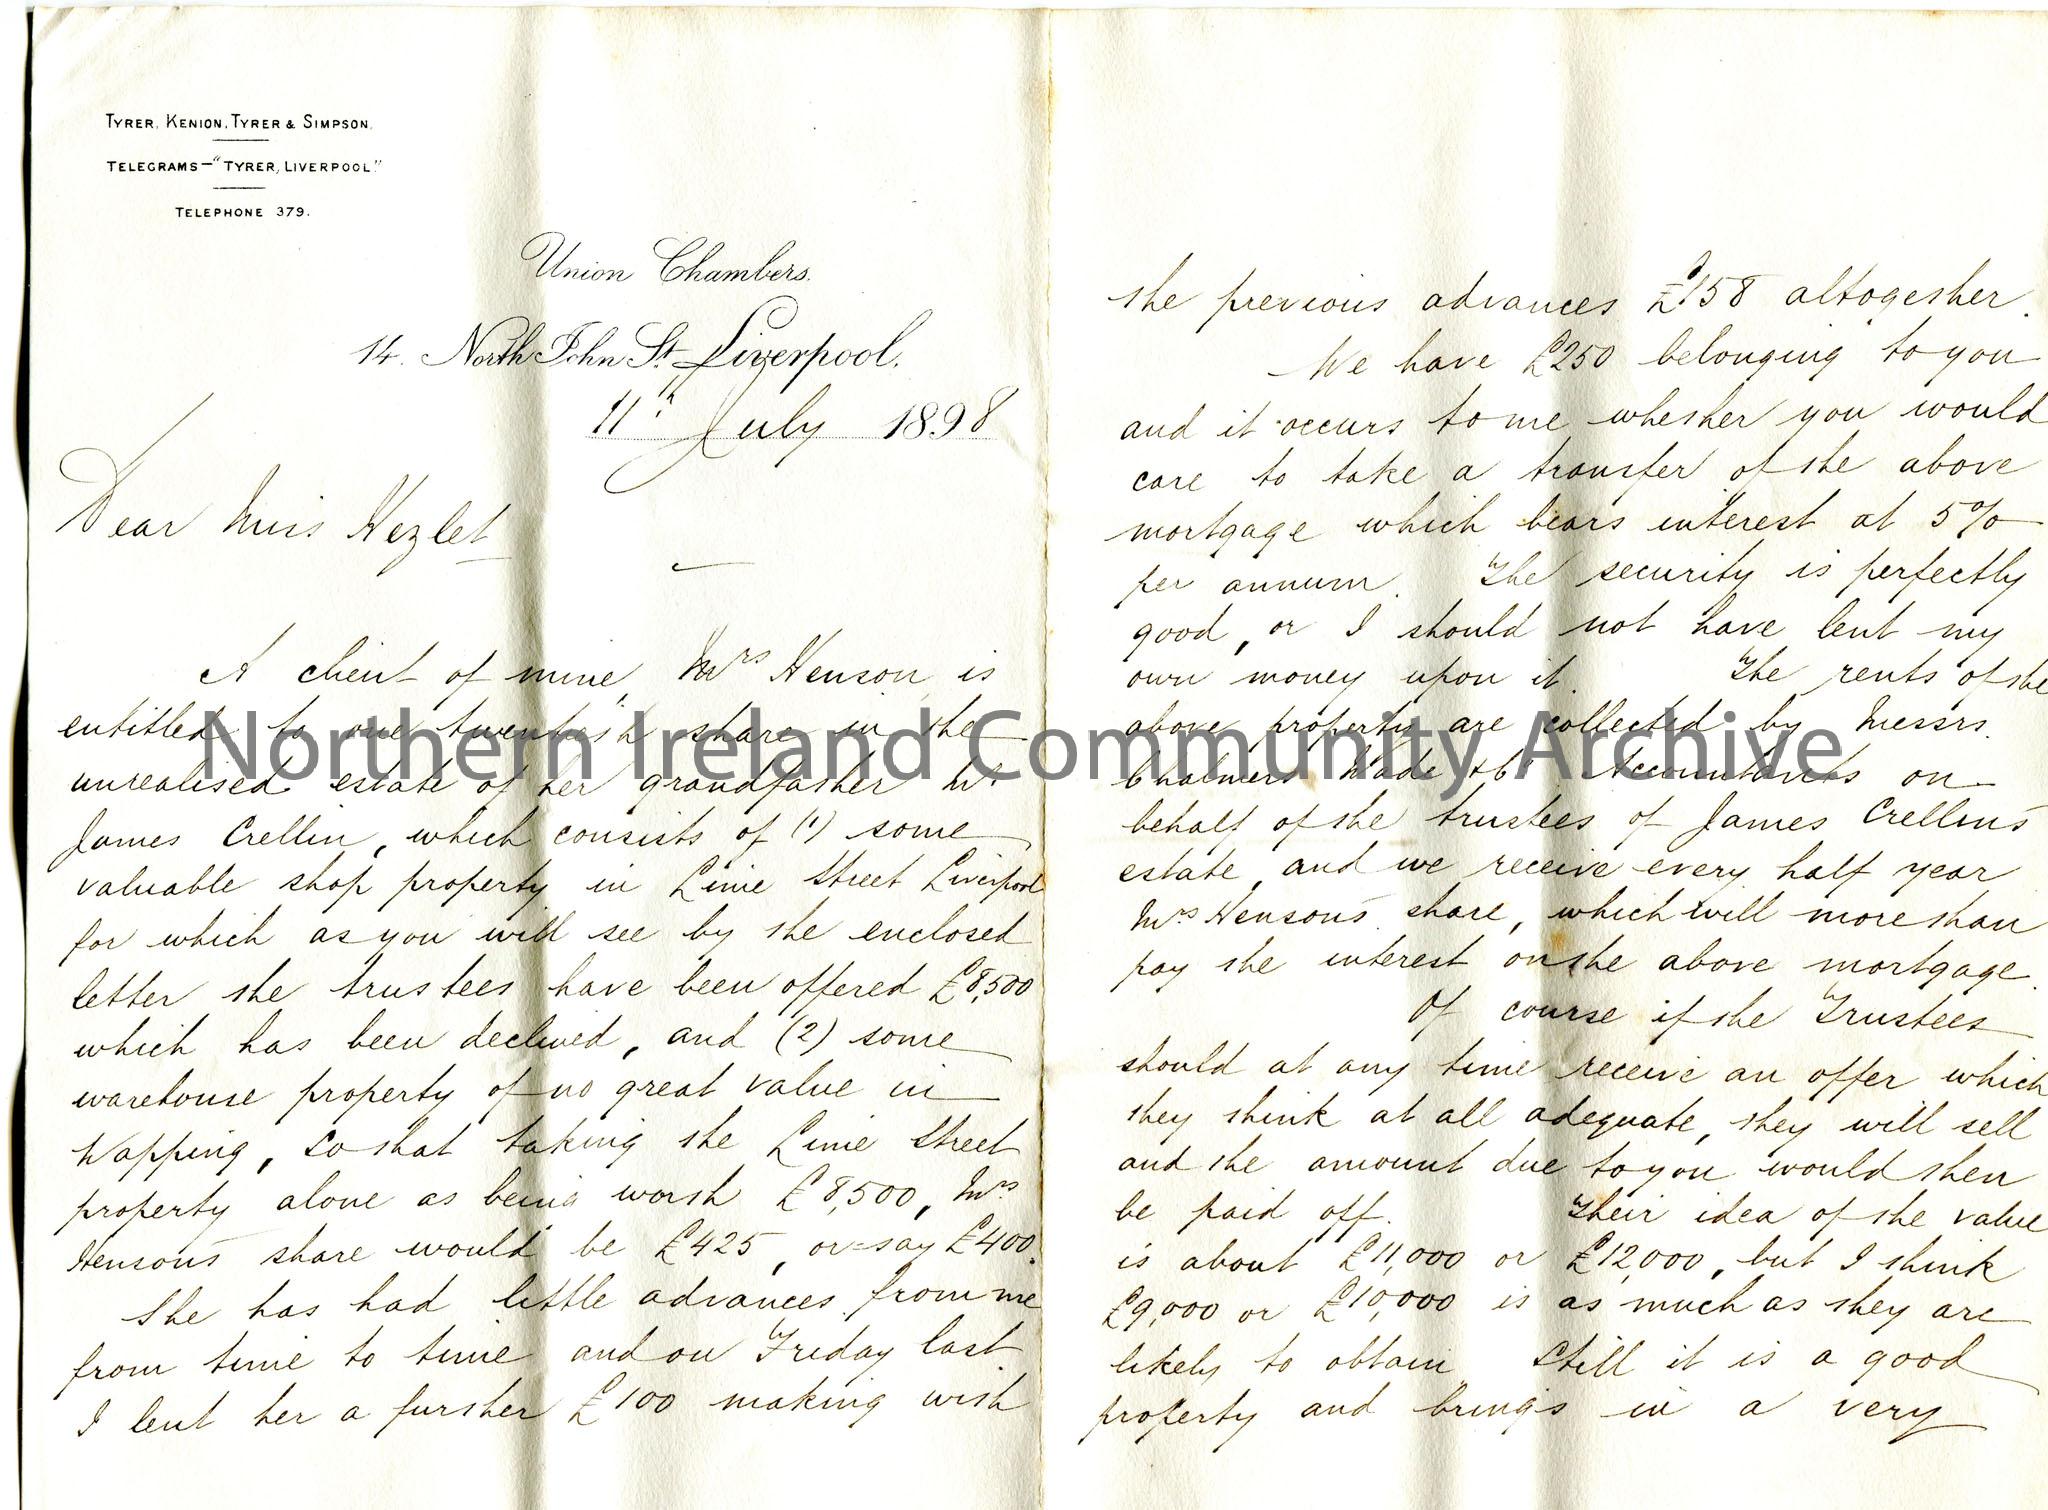 TYRER, KENION, TYRER & SIMPSON.
TELEGRAMS—"TYRER, LIVERPOOL."
TELEPHONE 379.
Union Chambers.
14. North John St. Liverpool.
11th July 1898
Dear Miss Hezlet
A client of mine, Mrs Henson, is
entitled to one twentieth share in the
unrealised estate of her grandfather Mr
James Crellin, which consists of (1) some
valuable shop property in Lime Street Liverpool
for which as you will see by the enclosed
letter the trustees have been offered £8,500
which has been declined, and (2) some
warehouse property of no great value in
Wapping, so that taking the Lime Street
property alone as being worth £8,500, Mrs
Henson's share would be £425, or say £400.
She has had little advances from me
from time to time and on Friday last
I lent her a further £100 making with
the previous advances £158 altogether.
We have £250 belonging to you
and it occurs to me whether you would
care to take a transfer of the above
mortgage which bears interest at 5%
per annum. The security is perfectly
good, or I should not have lent my
own money upon it. The rents of the
above property are collected by Messrs.
Chalmers Wade & Co Accountants on
behalf of the trustees of James Crellin's
estate, and we receive every half year
Mrs Henson's share, which will more than
pay the interest on the above mortgage.
Of course if the Trustees
should at any time receive an offer which
they think at all adequate, they will sell
and the amount due to you would then
be paid off. Their idea of the value
is about £11,000 or £12,000, but I think
£9,000 or £10,000 is as much as they are
likely to obtain. Still it is a good
property and brings in a very
Northern Ireland Community Archive